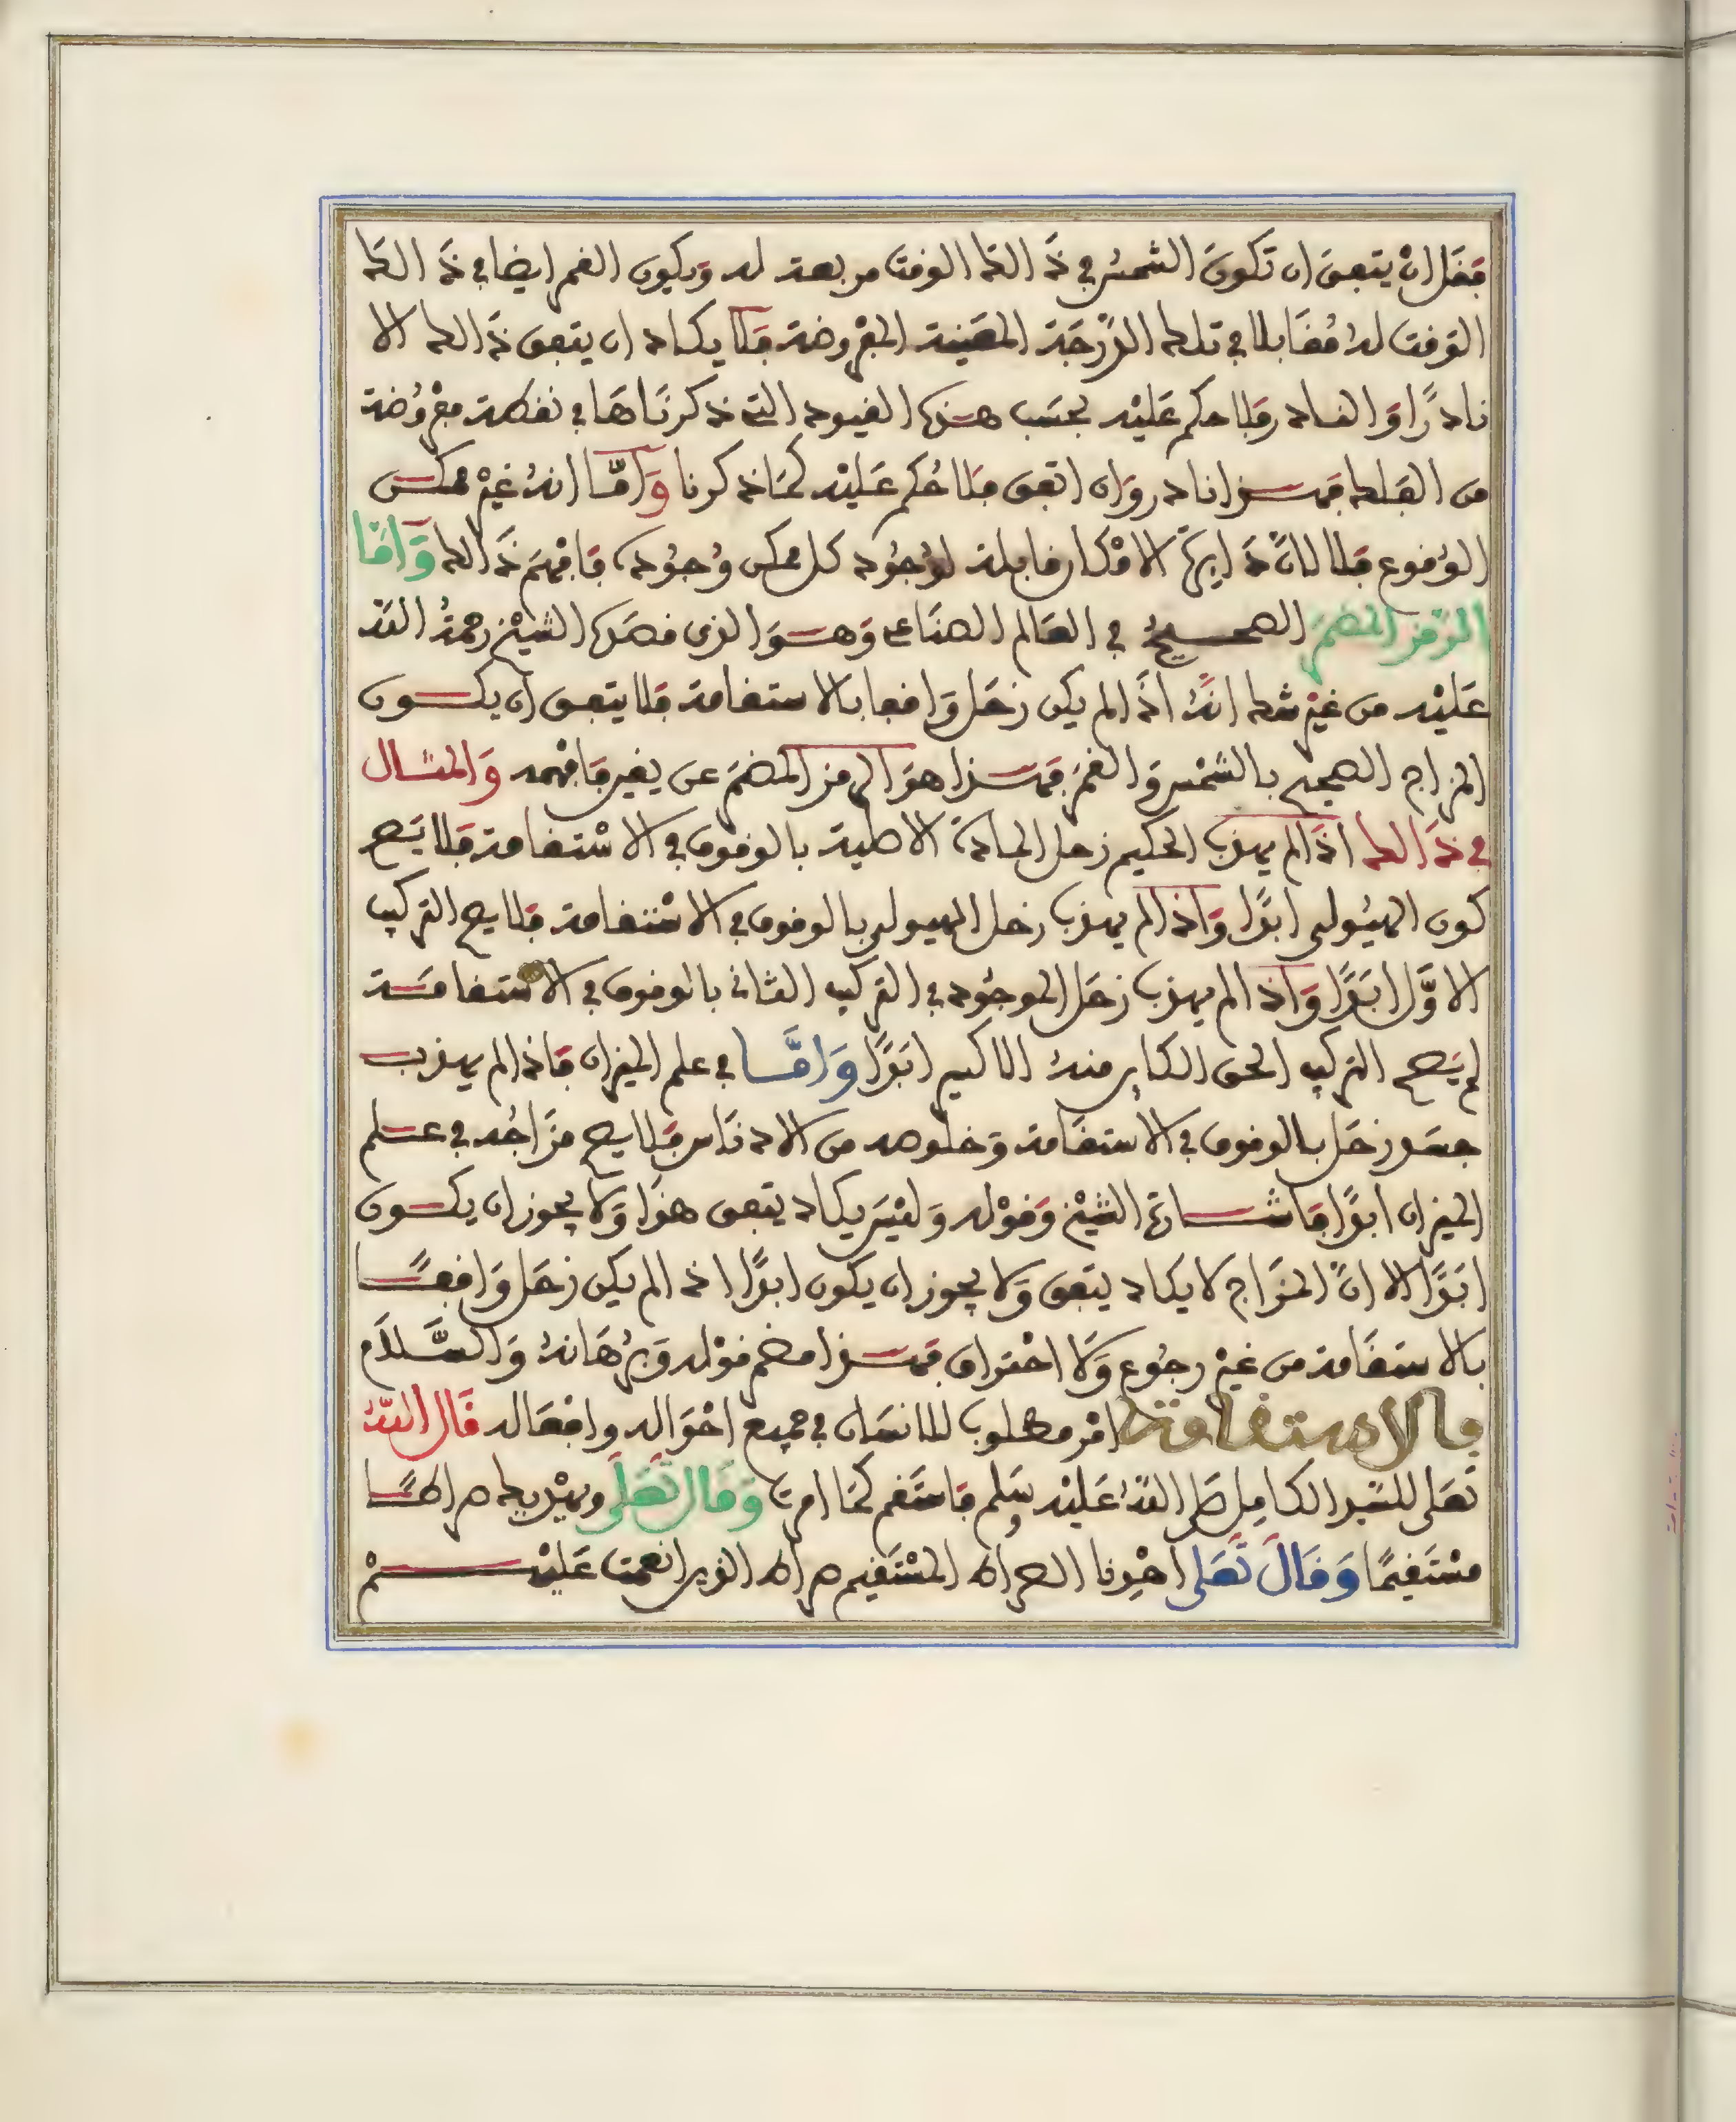 فقل ان يتفق ان تكون الشمس في ذالك الوقت مربعة له ويكون القمر ايضا في ذالك
الوقت له مقابلا في تلك الدرجة المعينة المفروضة فلا يكاد ان يتفق ذالك الا
نادرًا والنادر فلا حكم عليه بحسب هذه القيود التي ذكرناها في نقطة مفروضة
من الفلك فهذا نادر وان اتفق فلا حكم عليه كما ذكرنا وامّا انه غير ممكن
الوقوع فلا لانّ دايرة الامكان قابلة لوجود كل ممكن وجوده فافهم ذالك وامّا
الرمز المضمر الصحيح في العالم الصناعي وهو الذي قصده الشيخ رحمه الله
عليه من غير شك انه اذا لم يكن زحل واقعا بالاستقامة فلا يتفق ان يكون
المزاج الصحيح بالشمس والقمر فهذا هو الرمز المضمر عن يقين فافهمه والمثال
في ذالك اذا لم يهذب الحكيم زحل المادة الاصلية بالوقوف في الاستقامة فلا يصح
كون الهيولى ابدًا واذا لم يهذب زحل الهيولى بالوقوف في الاستقامة فلا يصح التركيب
الاوّل ابدًا واذا لم يهذب زحل الموجود في التركيب الثاني بالوقوف في الاستقامة
لم يصح التركيب الحق الكاين منه الاكسير ابدًا وامّا في علم الميزان فاذا لم يهذب
جسد زحل بالوقوف في الاستقامة وخلوصه من الادناس فلا يصح مزاجه في علم
الميزان ابدًا فاشارة الشيخ وقوله وليس يكاد يتفق هذا ولا يجوز ان يكون
ابدًا الا انّ المزاج لا يكاد يتفق ولا يجوز ان يكون ابدًا اذا لم يكن زحل واقعًا
بالاستقامة من غير رجوع ولا احتراق فهذا مضمر قوله وبرهانه والسّلام
فالاستقامة امر مطلوب للانسان في جميع احواله وافعاله قال الله
تعلى للسيد الكامل صلى الله عليه وسلم فاستقم كما امرت وقال تعلى ويهديك صراطًا
مستقيمًا وقال تعلى اهدنا الصراط المستقيم صراط الذين انعمت عليهم